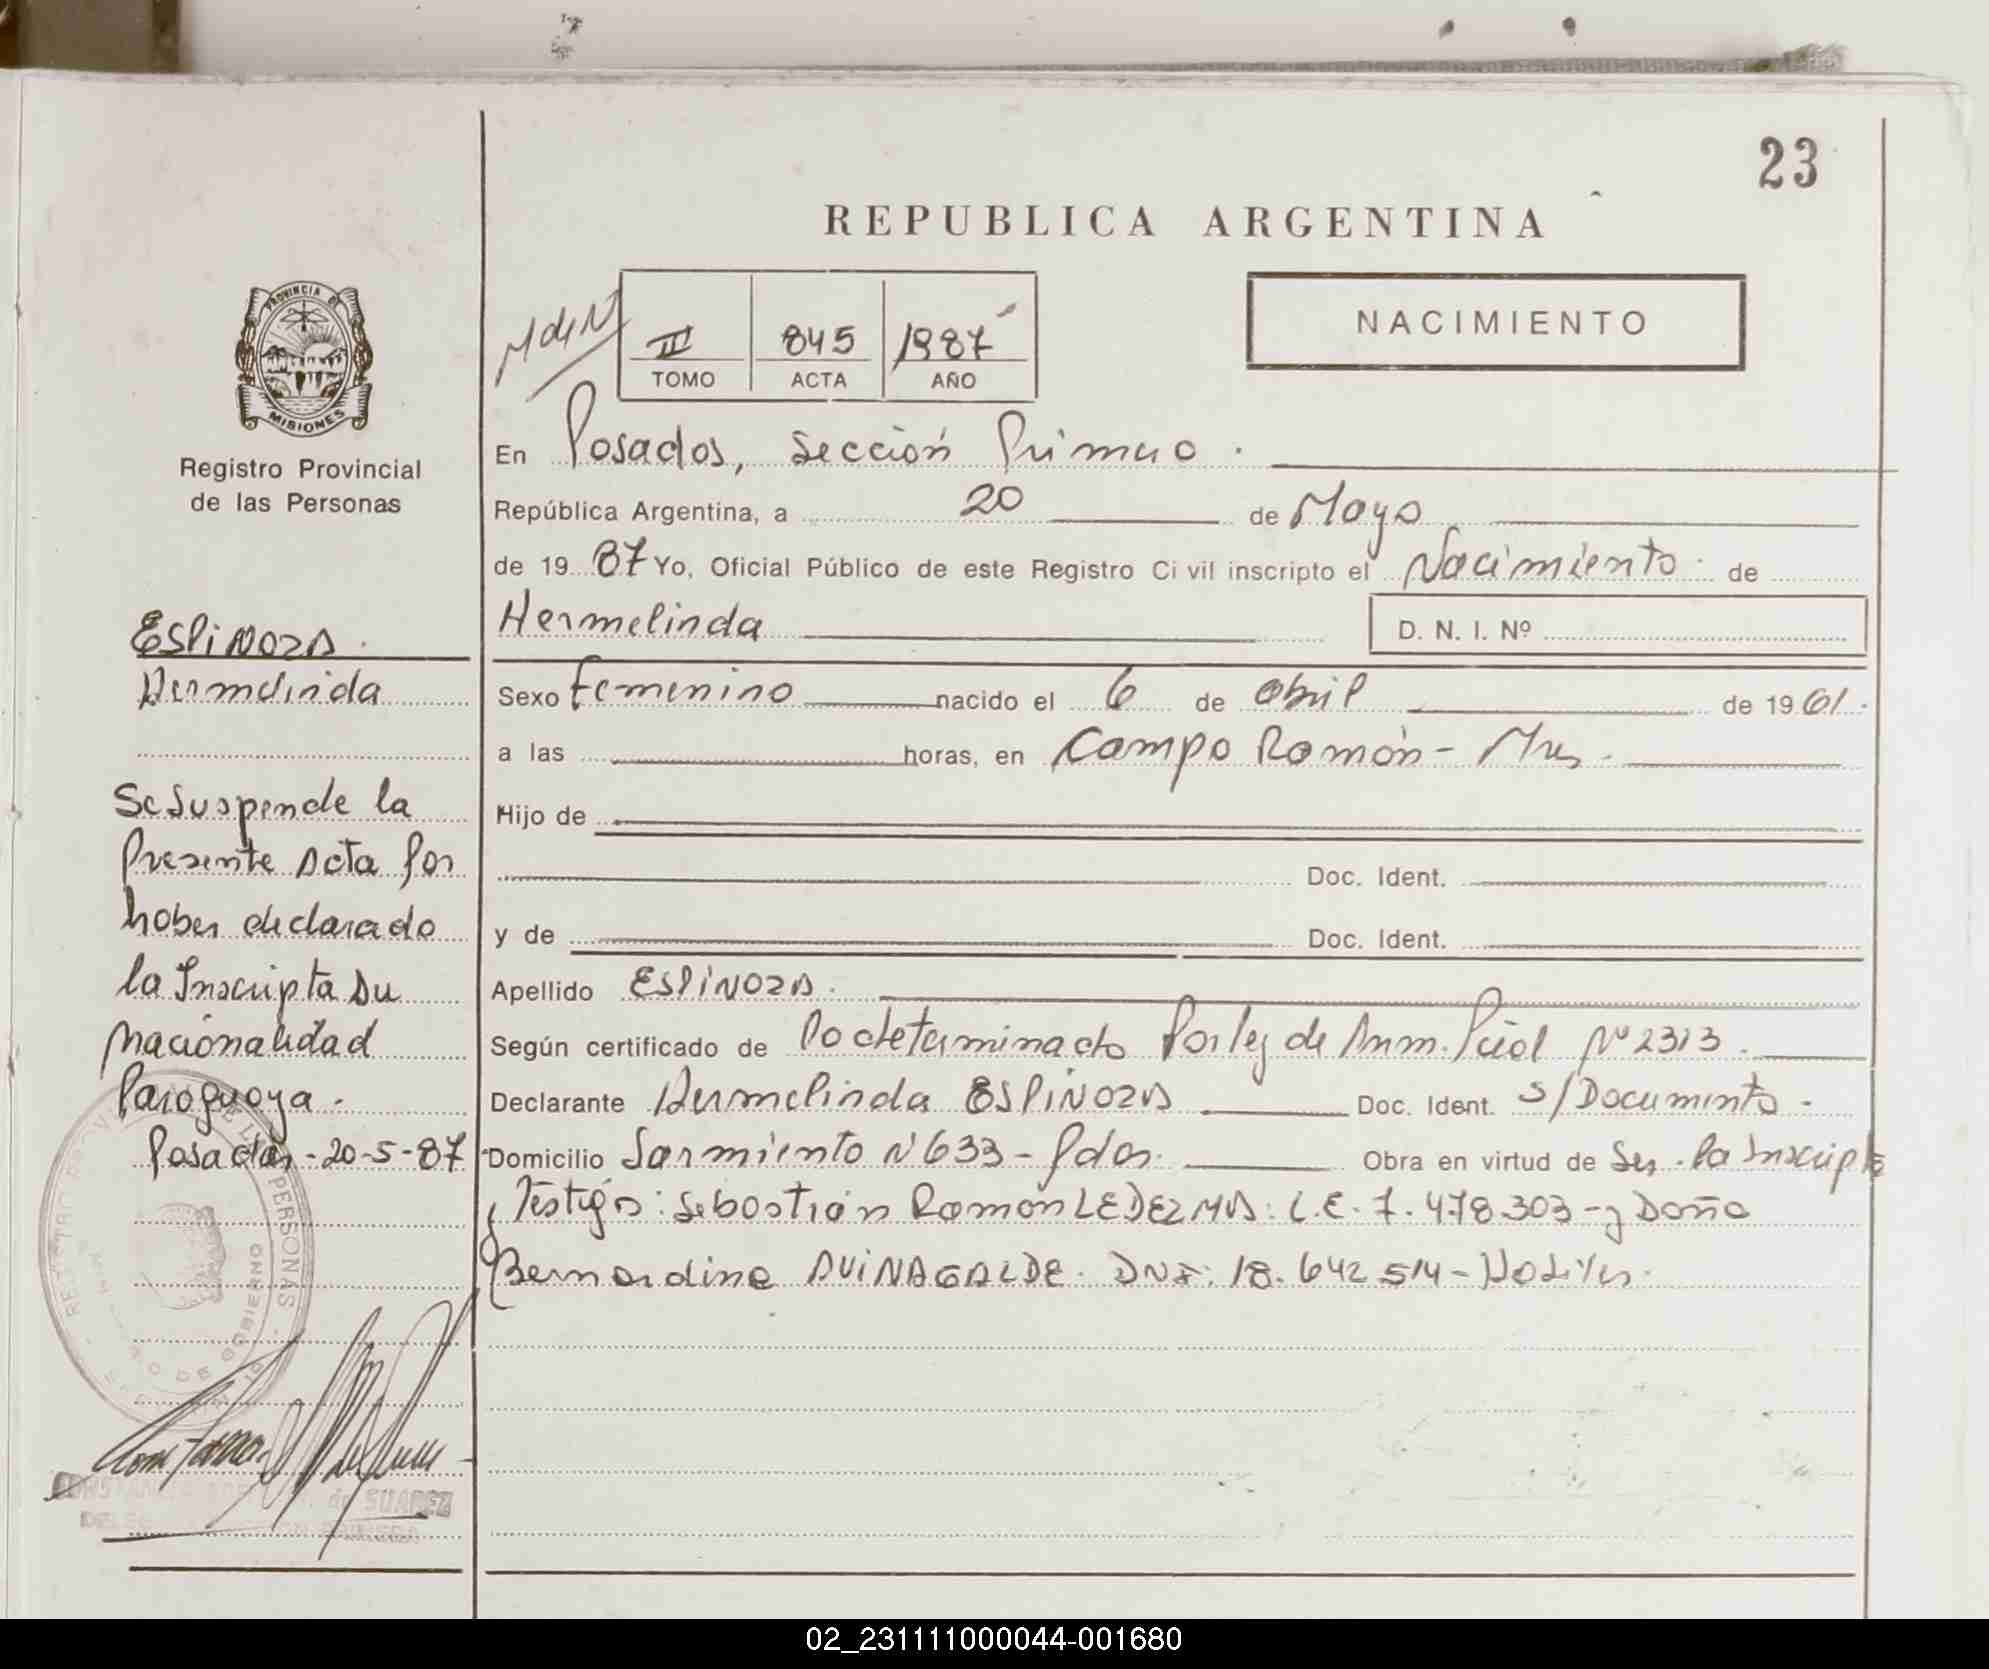 23
REPUBLICA ARGENTINA
NACIMIENTO
III 845 1987
TOMO ACTA AÑO
PROVINCIA DE
MISIONES
Registro Provincial
de las Personas
En Posadas, Sección Primera.
República Argentina, a 20 de Mayo
de 1987 Yo, Oficial Público de este Registro Civil inscripto el Nacimiento de
Hermelinda D. N. I. Nº
Sexo Femenino nacido el 6 de abril de 1961.
a las horas, en Campo Ramón - Mnes.
Hijo de
Doc. Ident.
y de Doc. Ident.
Apellido ESPINOZA.
Según certificado de lo determinado por ley de Pcial Nº 2313.
Declarante Hermelinda ESPINOZA Doc. Ident. S/Documento.
Domicilio Sarmiento Nº 633 - Pdas. Obra en virtud de Ser la Inscripta
Testigos: Sebastián Ramón LEDEZMA: L.E. 7.478.303 - y Doña
Bernardina AVINAGALDE. DNI: 18.642.514 -
ESPINOZA.
Hermelinda
Se Suspende la
Presente Acta por
haber declarado
la Inscripta Su
nacionalidad
Paraguaya.
Posadas - 20-5-87
DE LAS PERSONAS
DE GOBIERNO
de SUAREZ
02_231111000044-001680